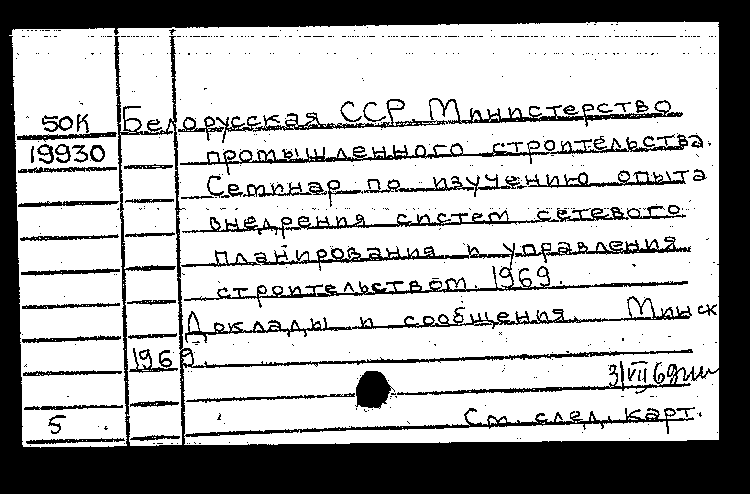 50К Белорусская ССР. Министерство
19930 промышленного строительства.
Семинар по изучению опыта
внедрения систем сетевого
планирования и управления
строительством. 1969.
Доклады и сообщения. Минск
1969.
3/VII 69
5 См. след. карт.